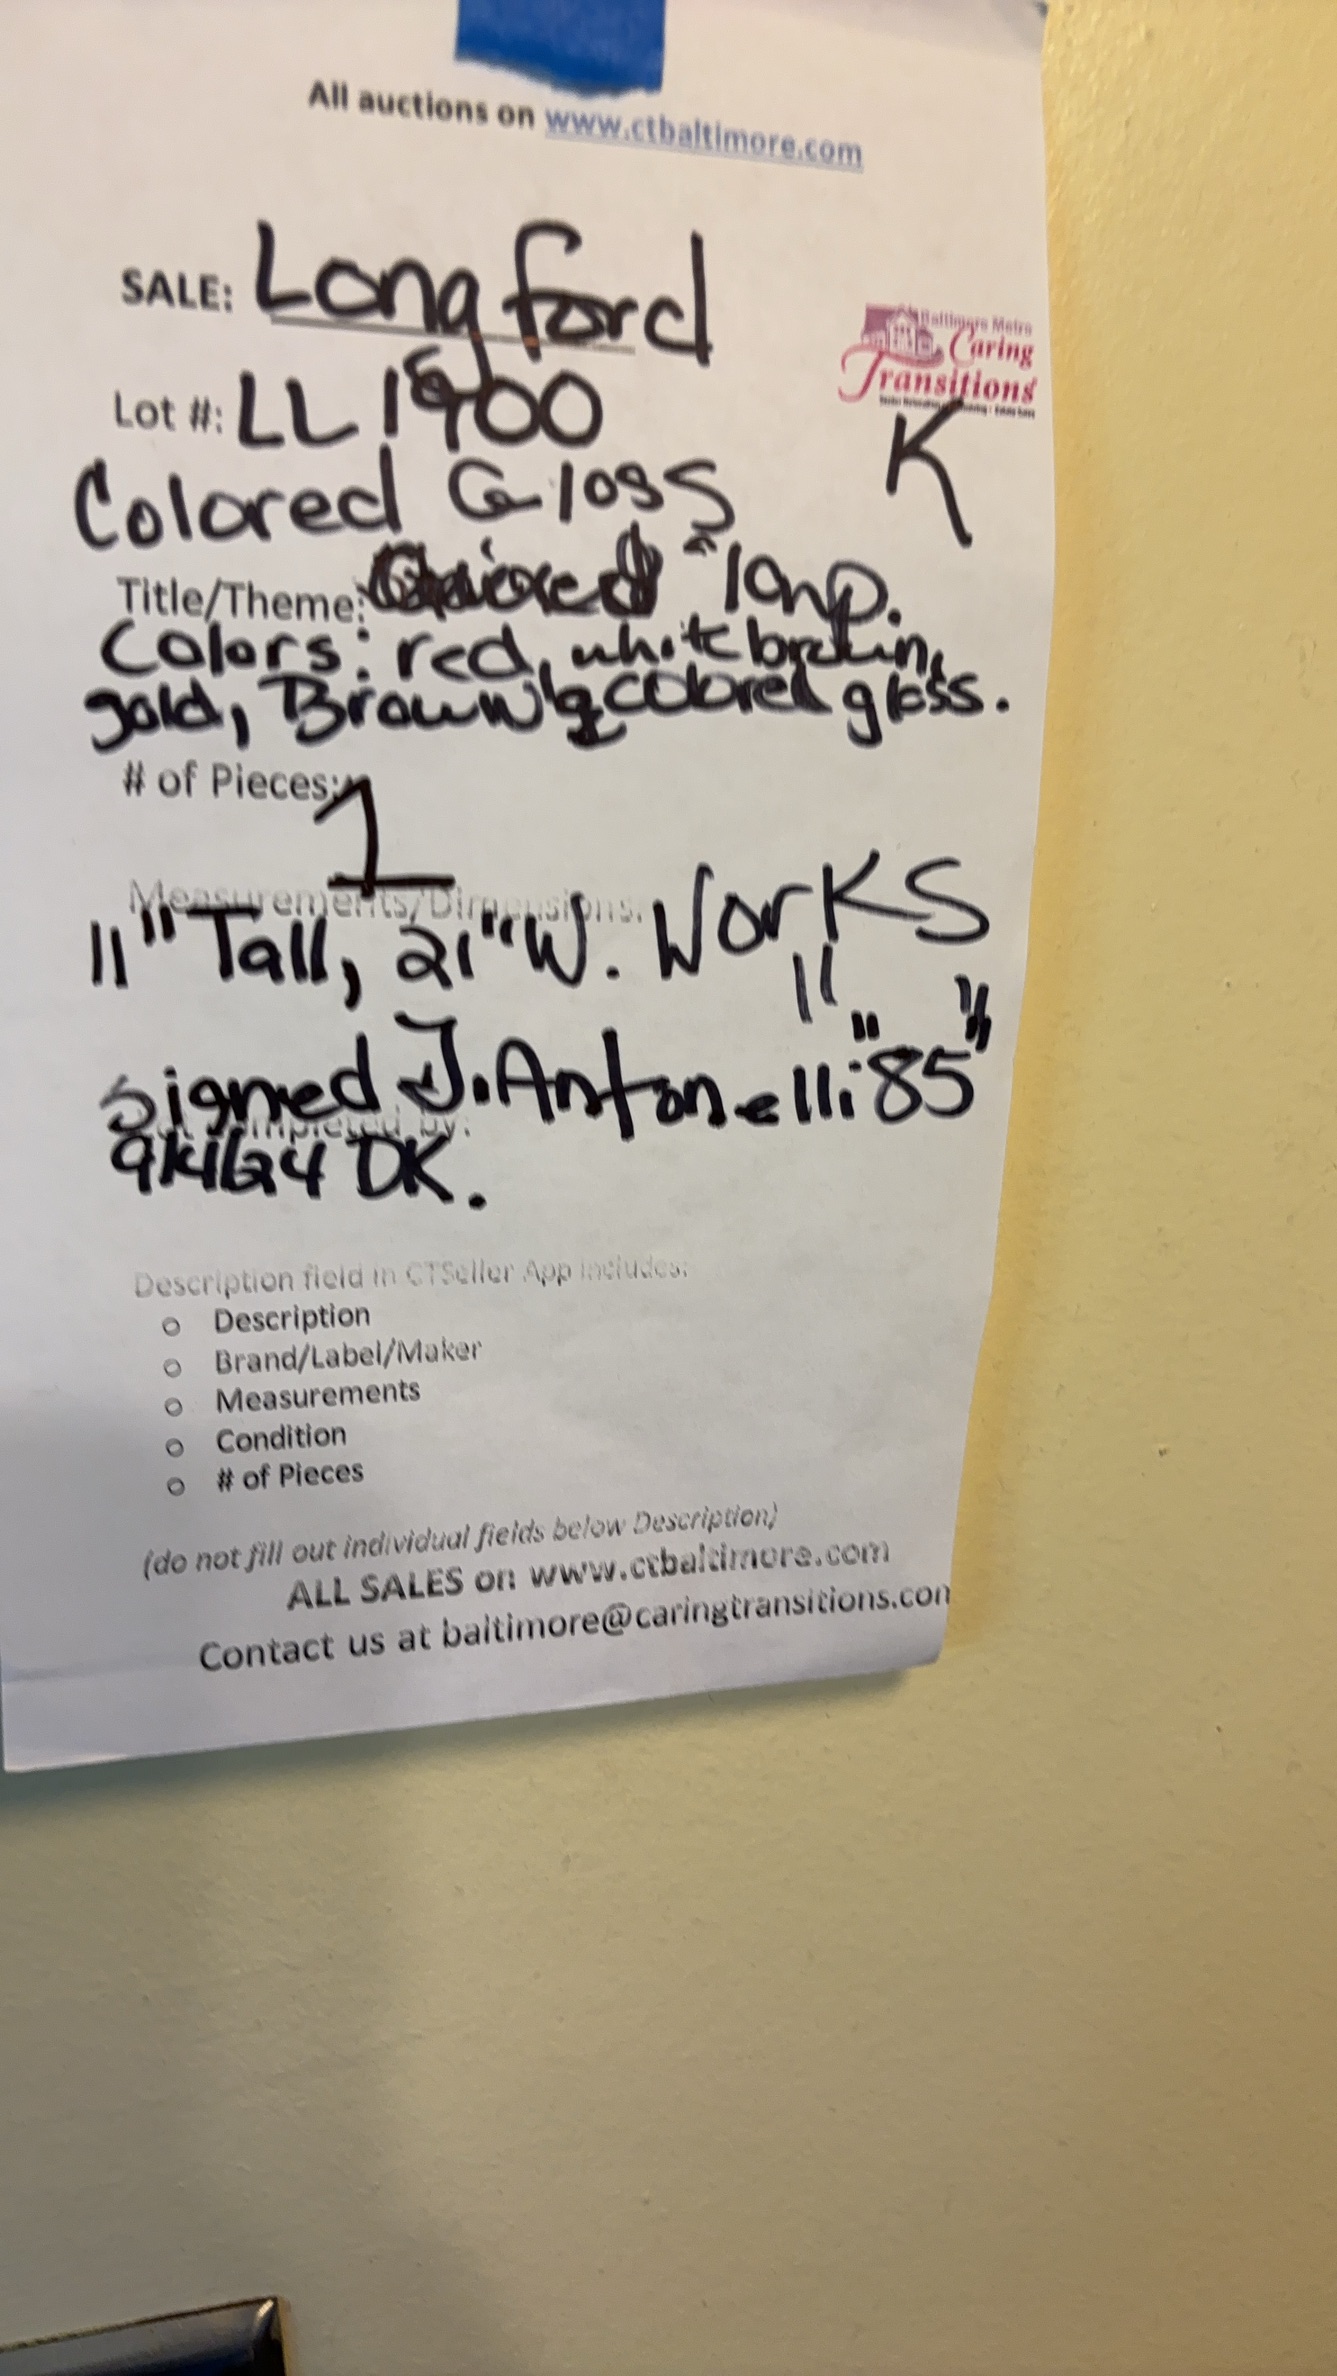 All auctions on www.ctbaltimore.com
SALE: Longford
Baltimore Metro
Caring
Transitions
Lot #: LL
K
Colored Glass
Title/Theme: lamp.
Colors: red, white
gold, Brown colored glass.
# of Pieces: 1
Measurements/Dimensions:
11" Tall, 21" W. Works
signed J. Antonelli "85"
Completed by:
DK.
Description field in CTSeller App includes:
o Description
o Brand/Label/Maker
o Measurements
o Condition
o # of Pieces
(do not fill out individual fields below Description)
ALL SALES on www.ctbaltimore.com
Contact us at baltimore@caringtransitions.com